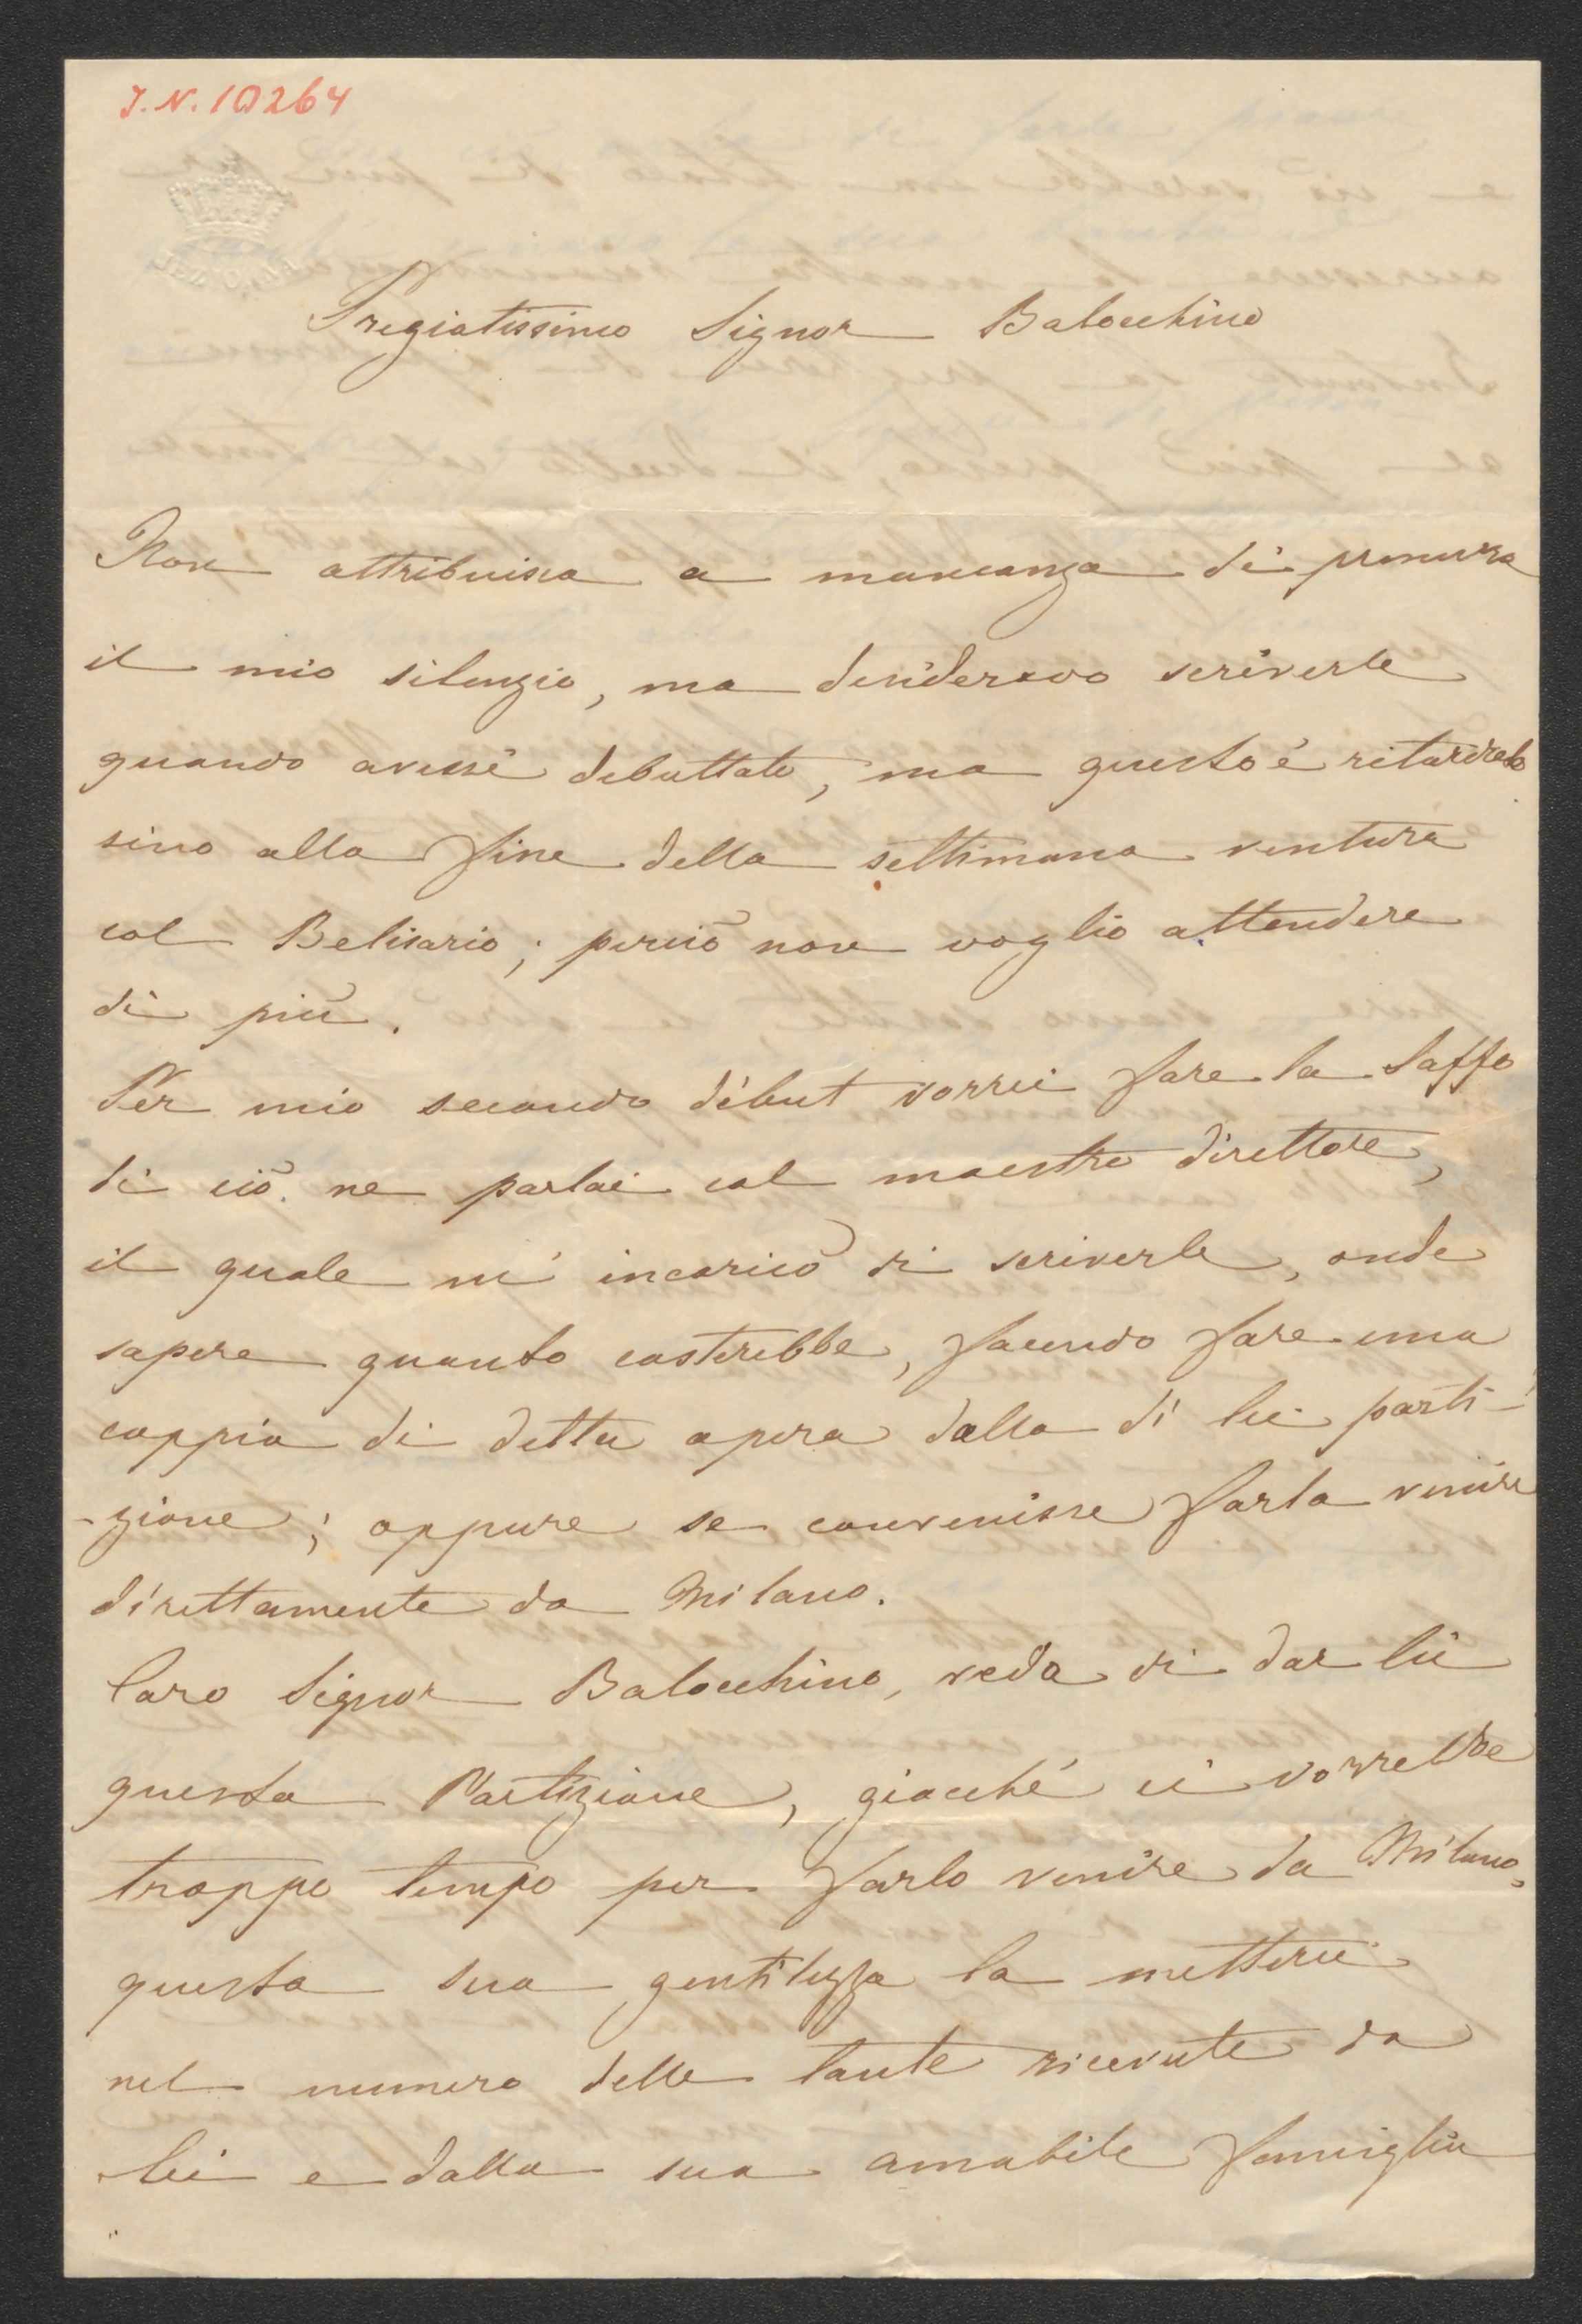 J.N. 10264
Pregiatissimo Signor Balocchino
Non attribuisca a mancanza di premura
il mio silenzio, ma desideravo scriverle
quando avessi debuttato, ma questo è ritardato
sino alla fine della settimana ventura
col Belisario; perciò non voglio attendere
di più.
Per mio secondo début vorrei fare la Saffo
di ciò ne parlai col maestro direttore,
il quale m' incaricò di scriverle, onde
sapere quanto costerebbe, facendo fare una
coppia di detta opera dalla di lei parti-
-zione; oppure se convenisse farla venire
direttamente da Milano.
Caro Signor Balocchino, veda di dar lei
questa Partizione, giacché ci vorrebbe
troppo tempo per farlo venire da Milano,
questa sua gentilezza la metterei
nel numero delle tante ricevute da
lei e dalla sua amabile famiglia